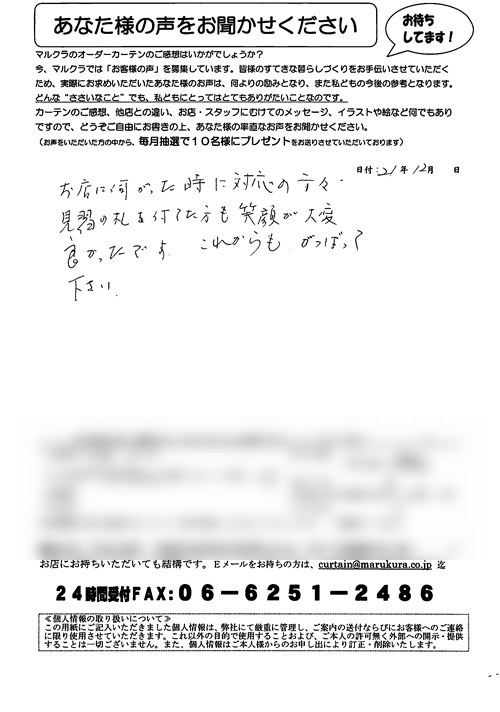 あなた様の声をお聞かせください
お待ち
してます!
マルクラのオーダーカーテンのご感想はいかがでしょうか?
今、マルクラでは「お客様の声」を募集しています。皆様のすてきな暮らしづくりをお手伝いさせていただく
ため、実際にお求めいただいたあなた様のお声は、何よりの励みとなり、また私どもの今後の参考となります。
どんな“ささいなこと”でも、私どもにとってはとてもありがたいことなのです。
カーテンのご感想、他店との違い、お店・スタッフにむけてのメッセージ、イラストや絵など何でもあり
ですので、どうぞご自由にお書きの上、あなた様の率直なお声をお聞かせください。
(お声をいただいた方の中から、毎月抽選で10名様にプレゼントをお送りさせていただいております)
日付:21年12月 日
お店に伺がった時に対応の方々
見習の札を付てた方も笑顔が大変
良かったですよ これからも がっばって
下さい.
お店にお持ちいただいても結構です。Eメールをお持ちの方は、curtain@marukura.co.jp 迄
24時間受付FAX:06-6251-2486
≪個人情報の取り扱いについて≫
この用紙にご記入いただきました個人情報は、弊社にて厳重に管理し、ご案内の送付ならびにお客様へのご連絡
に限り使用させていただきます。これ以外の目的で使用することおよび、ご本人の許可無く外部への開示・提供
することは一切ございません。また、個人情報はご本人様からのお申し出により訂正・削除いたします。